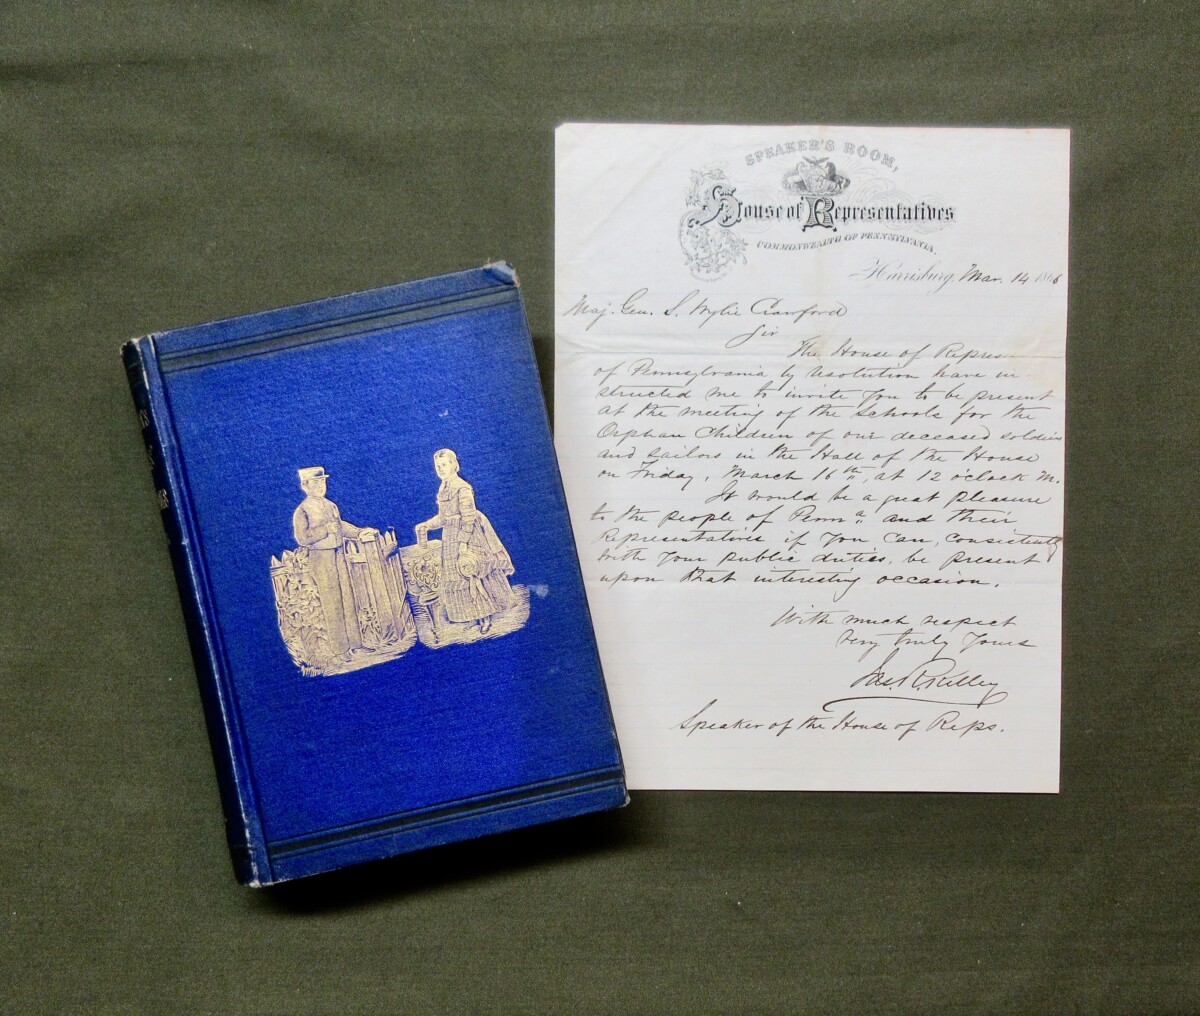 SPEAKER'S ROOM,
House of Representatives
COMMONWEALTH OF PENNSYLVANIA.
Harrisburg, Mar. 14 1866
Maj. Gen. S. Wylie Crawford
Sir
The House of Repres
of Pennsylvania by resolution have in
structed me to invite you to be present
at the meeting of the schools for the
Orphan Children of our deceased soldiers
and sailors in the Hall of the House
on Friday, March 16th, at 12 o'clock M.
It would be a great pleasure
to the people of Penna. and their
Representatives if you can, consistently
with your public duties, be present
upon that interesting occasion.
With much respect
Very truly Yours
Jas. R. Kelley
Speaker of the House of Reps.